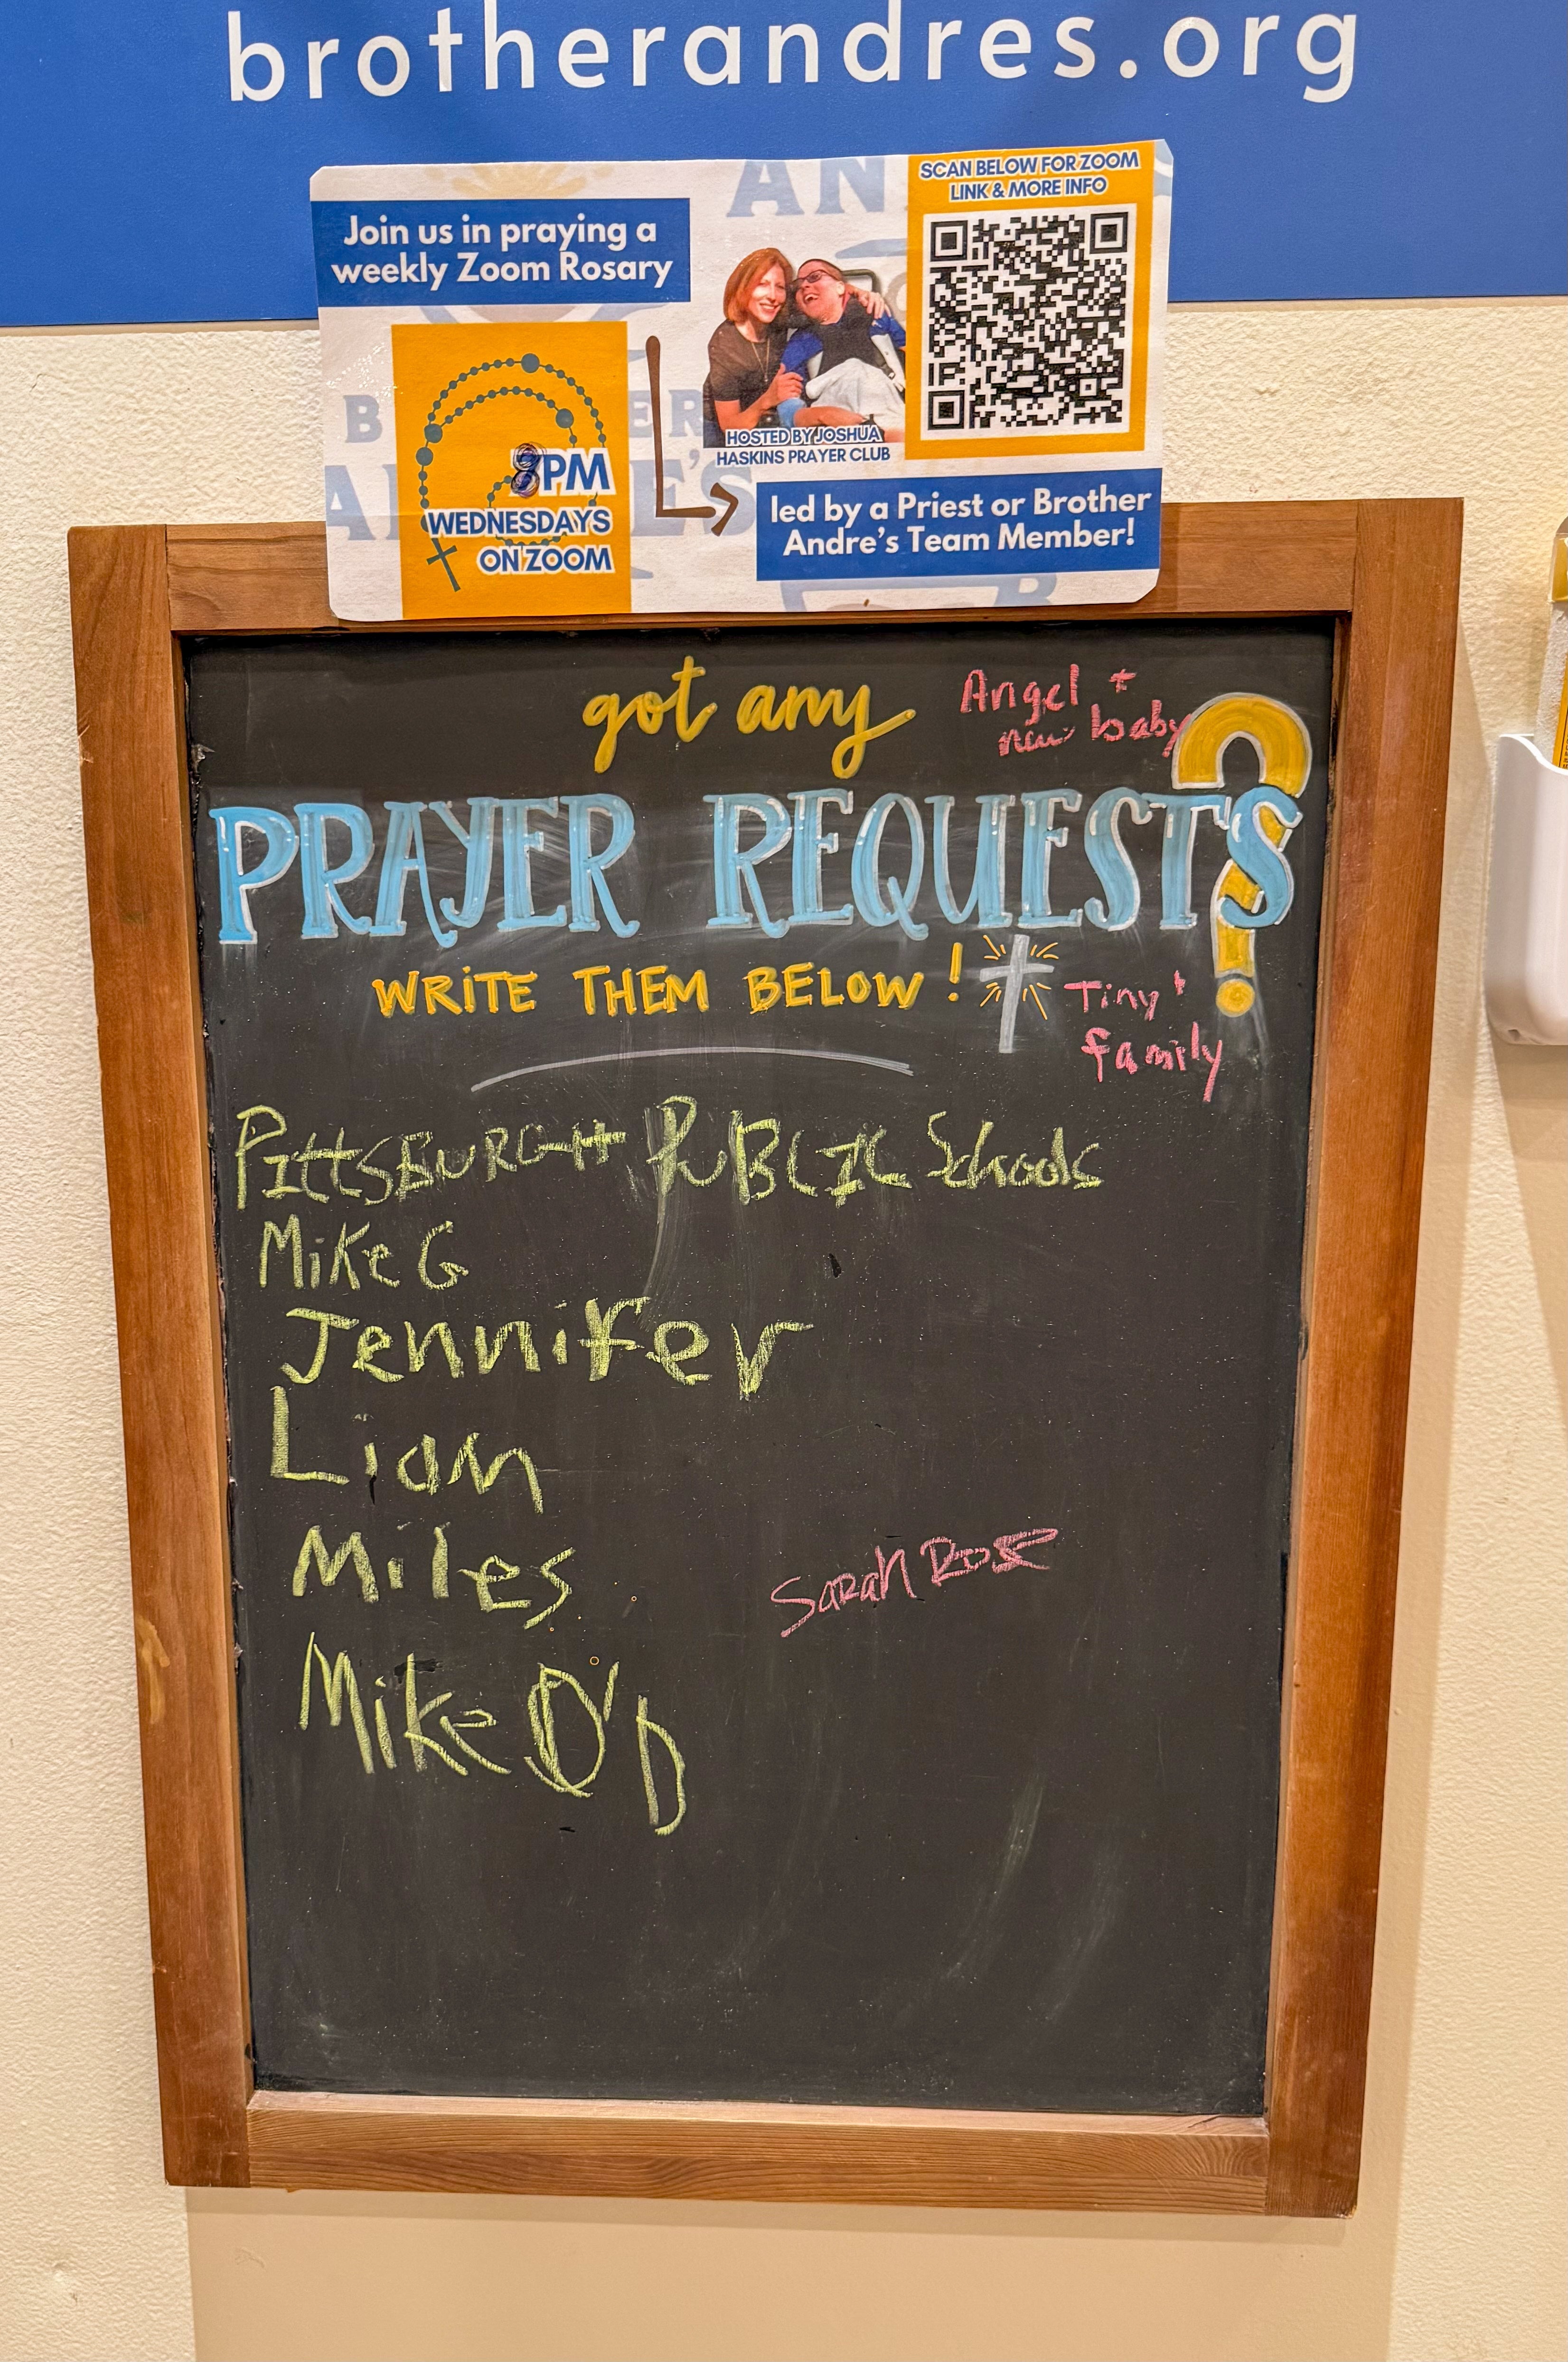 brotherandres.org
Join us in praying a
weekly Zoom Rosary
SCAN BELOW FOR ZOOM
LINK & MORE INFO
8PM
WEDNESDAYS
ON ZOOM
HOSTED BY JOSHUA
HASKINS PRAYER CLUB
led by a Priest or Brother
Andre's Team Member!
got any
Angel +
new baby
PRAYER REQUESTS?
WRITE THEM BELOW!
Tiny +
family
PITTSBURGH PUBLIC Schools
Mike G
Jennifer
Liam
Miles
Sarah Rose
Mike O'D